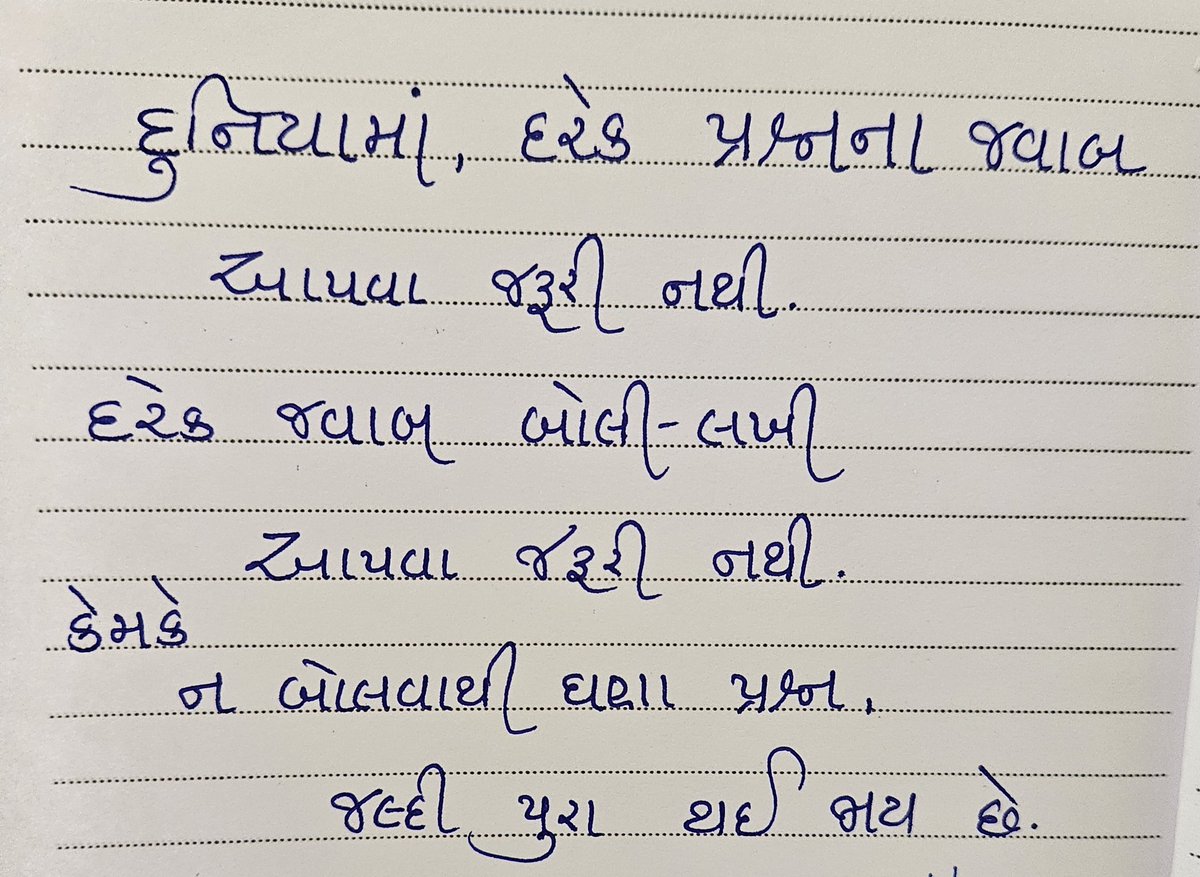 દુનિયામાં, દરેક પ્રશ્નના જવાબ
આપવા જરૂરી નથી.
દરેક જવાબ બોલી-લખી
આપવા જરૂરી નથી.
કેમકે
ન બોલવાથી ઘણા પ્રશ્ન,
જલ્દી પુરા થઈ જાય છે.